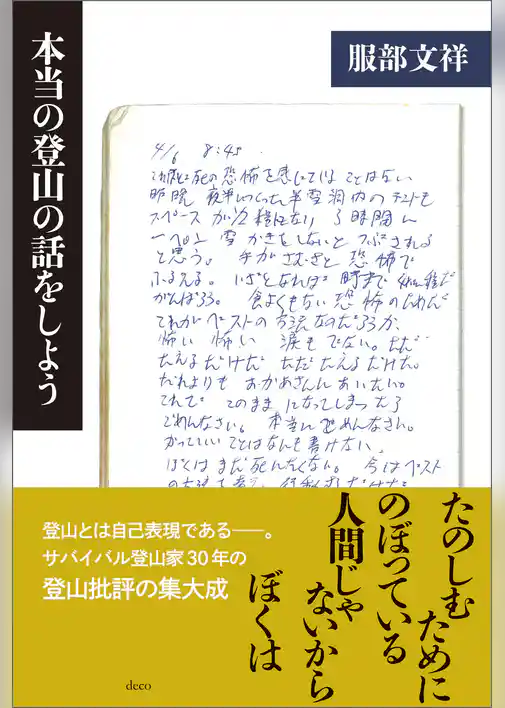 本当の登山の話をしよう
服部文祥
4/6 8:45
これほど死の恐怖を感じていることはない
昨晩 夜半につくった半雪洞内のテントも
スペースが1/2程になり 3時間に
一ぺん 雪かきをしないと つぶされる
と思う。 手がさむさと 恐怖で
ふるえる。 いざとなれば 時まで
がんばろう。 食よくもない 恐怖のためだ
これがベストの方法なのだろうか、
怖い 怖い 涙もでない。ただ
たえるだけだ ただたえるだけだ。
だれよりも おかあさんに あいたい。
これで このまま になってしまったら
ごめんなさい。 本当に ごめんなさい。
かっていいことはなんも書けない、
ぼくは まだ 死にたくない。 今は ベスト
の方法を考え、
たのしむために
のぼっている
人間じゃ
ないから
ぼくは
登山とは自己表現である——。
サバイバル登山家30年の
登山批評の集大成
deco